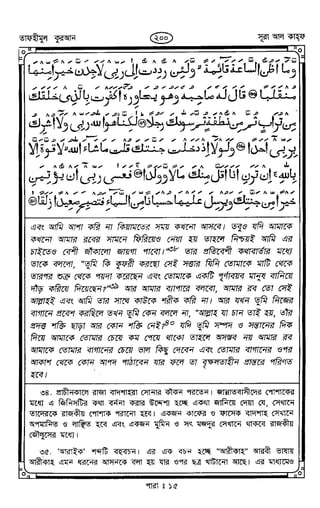 তাফহীমুল কুরআন
২০০
সূরা আল কাহফ
وَّمَآ اَظُنُّ السَّاعَةَ قَآئِمَةً ۙ وَّلَئِنْ رُّدِدْتُّ اِلٰى رَبِّىْ لَاَجِدَنَّ خَيْرًا مِّنْهَا
مُنْقَلَبًا ۞ قَالَ لَهٗ صَاحِبُهٗ وَهُوَ يُحَاوِرُهٗٓ اَكَفَرْتَ بِالَّذِىْ خَلَقَكَ
مِنْ تُرَابٍ ثُمَّ مِنْ نُّطْفَةٍ ثُمَّ سَوّٰىكَ رَجُلًا ۞ لٰكِنَّا۠ هُوَ اللّٰهُ رَبِّىْ وَلَآ اُشْرِكُ
بِرَبِّىْٓ اَحَدًا ۞ وَلَوْلَآ اِذْ دَخَلْتَ جَنَّتَكَ قُلْتَ مَا شَآءَ اللّٰهُ ۙ لَا قُوَّةَ اِلَّا
بِاللّٰهِ ۚ اِنْ تَرَنِ اَنَا اَقَلَّ مِنْكَ مَالًا وَّوَلَدًا ۞ فَعَسٰى رَبِّىْٓ اَنْ يُّؤْتِيَنِ
خَيْرًا مِّنْ جَنَّتِكَ وَيُرْسِلَ عَلَيْهَا حُسْبَانًا مِّنَ السَّمَآءِ فَتُصْبِحَ صَعِيْدًا زَلَقًا ۞
এবং আমি আশা করি না কিয়ামতের সময় কখনো আসবে। তবুও যদি আমাকে
কখনো আমার রবের সামনে ফিরিয়েও নেয়া হয় তাহলে নিশ্চয়ই আমি এর
চাইতেও বেশী জাঁকালো জায়গা পাবো। তার প্রতিবেশী কথাবার্তার মধ্যে
তাকে বললো, "তুমি কি কুফরী করছো সেই সত্তার যিনি তোমাকে মাটি থেকে
তারপর শুক্র থেকে পয়দা করেছেন এবং তোমাকে একটি পূর্ণাবয়ব মানুষ বানিয়ে
দাঁড় করিয়ে দিয়েছেন? আর আমার ব্যাপারে বলবো, আমার রব তো সেই
আল্লাহই এবং আমি তার সাথে কাউকে শরীক করি না। আর যখন তুমি নিজের
বাগানে প্রবেশ করছিলে তখন তুমি কেন বললে না, "আল্লাহ যা চান তাই হয়, তাঁর
প্রদত্ত শক্তি ছাড়া আর কোন শক্তি নেই? যদি তুমি সম্পদ ও সন্তানের দিক
দিয়ে আমাকে তোমার চেয়ে কম পেয়ে থাকো তাহলে অসম্ভব নয় আমার রব
আমাকে তোমার বাগানের চেয়ে ভাল কিছু দেবেন এবং তোমার বাগানের ওপর
আকাশ থেকে কোন আপদ পাঠাবেন যার ফলে তা বৃক্ষলতাহীন প্রান্তরে পরিণত
হবে।
৩৪. প্রাচীনকালে রাজা বাদশাহরা সোনার কাঁকন পরতেন। জান্নাতবাসীদের পোশাকের
মধ্যে এ জিনিসটির কথা বর্ণনা করার উদ্দেশ্য হচ্ছে একথা জানিয়ে দেয়া যে, সেখানে
তাদেরকে রাজকীয় পোশাক পরানো হবে। একজন কাফের ও ফাসেক বাদশাহ সেখানে
অপমানিত ও লাঞ্ছিত হবে এবং একজন মুমিন ও সৎ মজদুর সেখানে থাকবে রাজকীয়
জৌলুসের মধ্যে।
৩৫. 'আরাইক' শব্দটি বহুবচন। এর এক বচন হচ্ছে "আরীকাহ" আরবী ভাষায়
আরীকাহ এমন ধরনের আসনকে বলা হয় যার ওপর ছত্র খাটানো আছে। এর মাধ্যমেও
পারা : ১৫